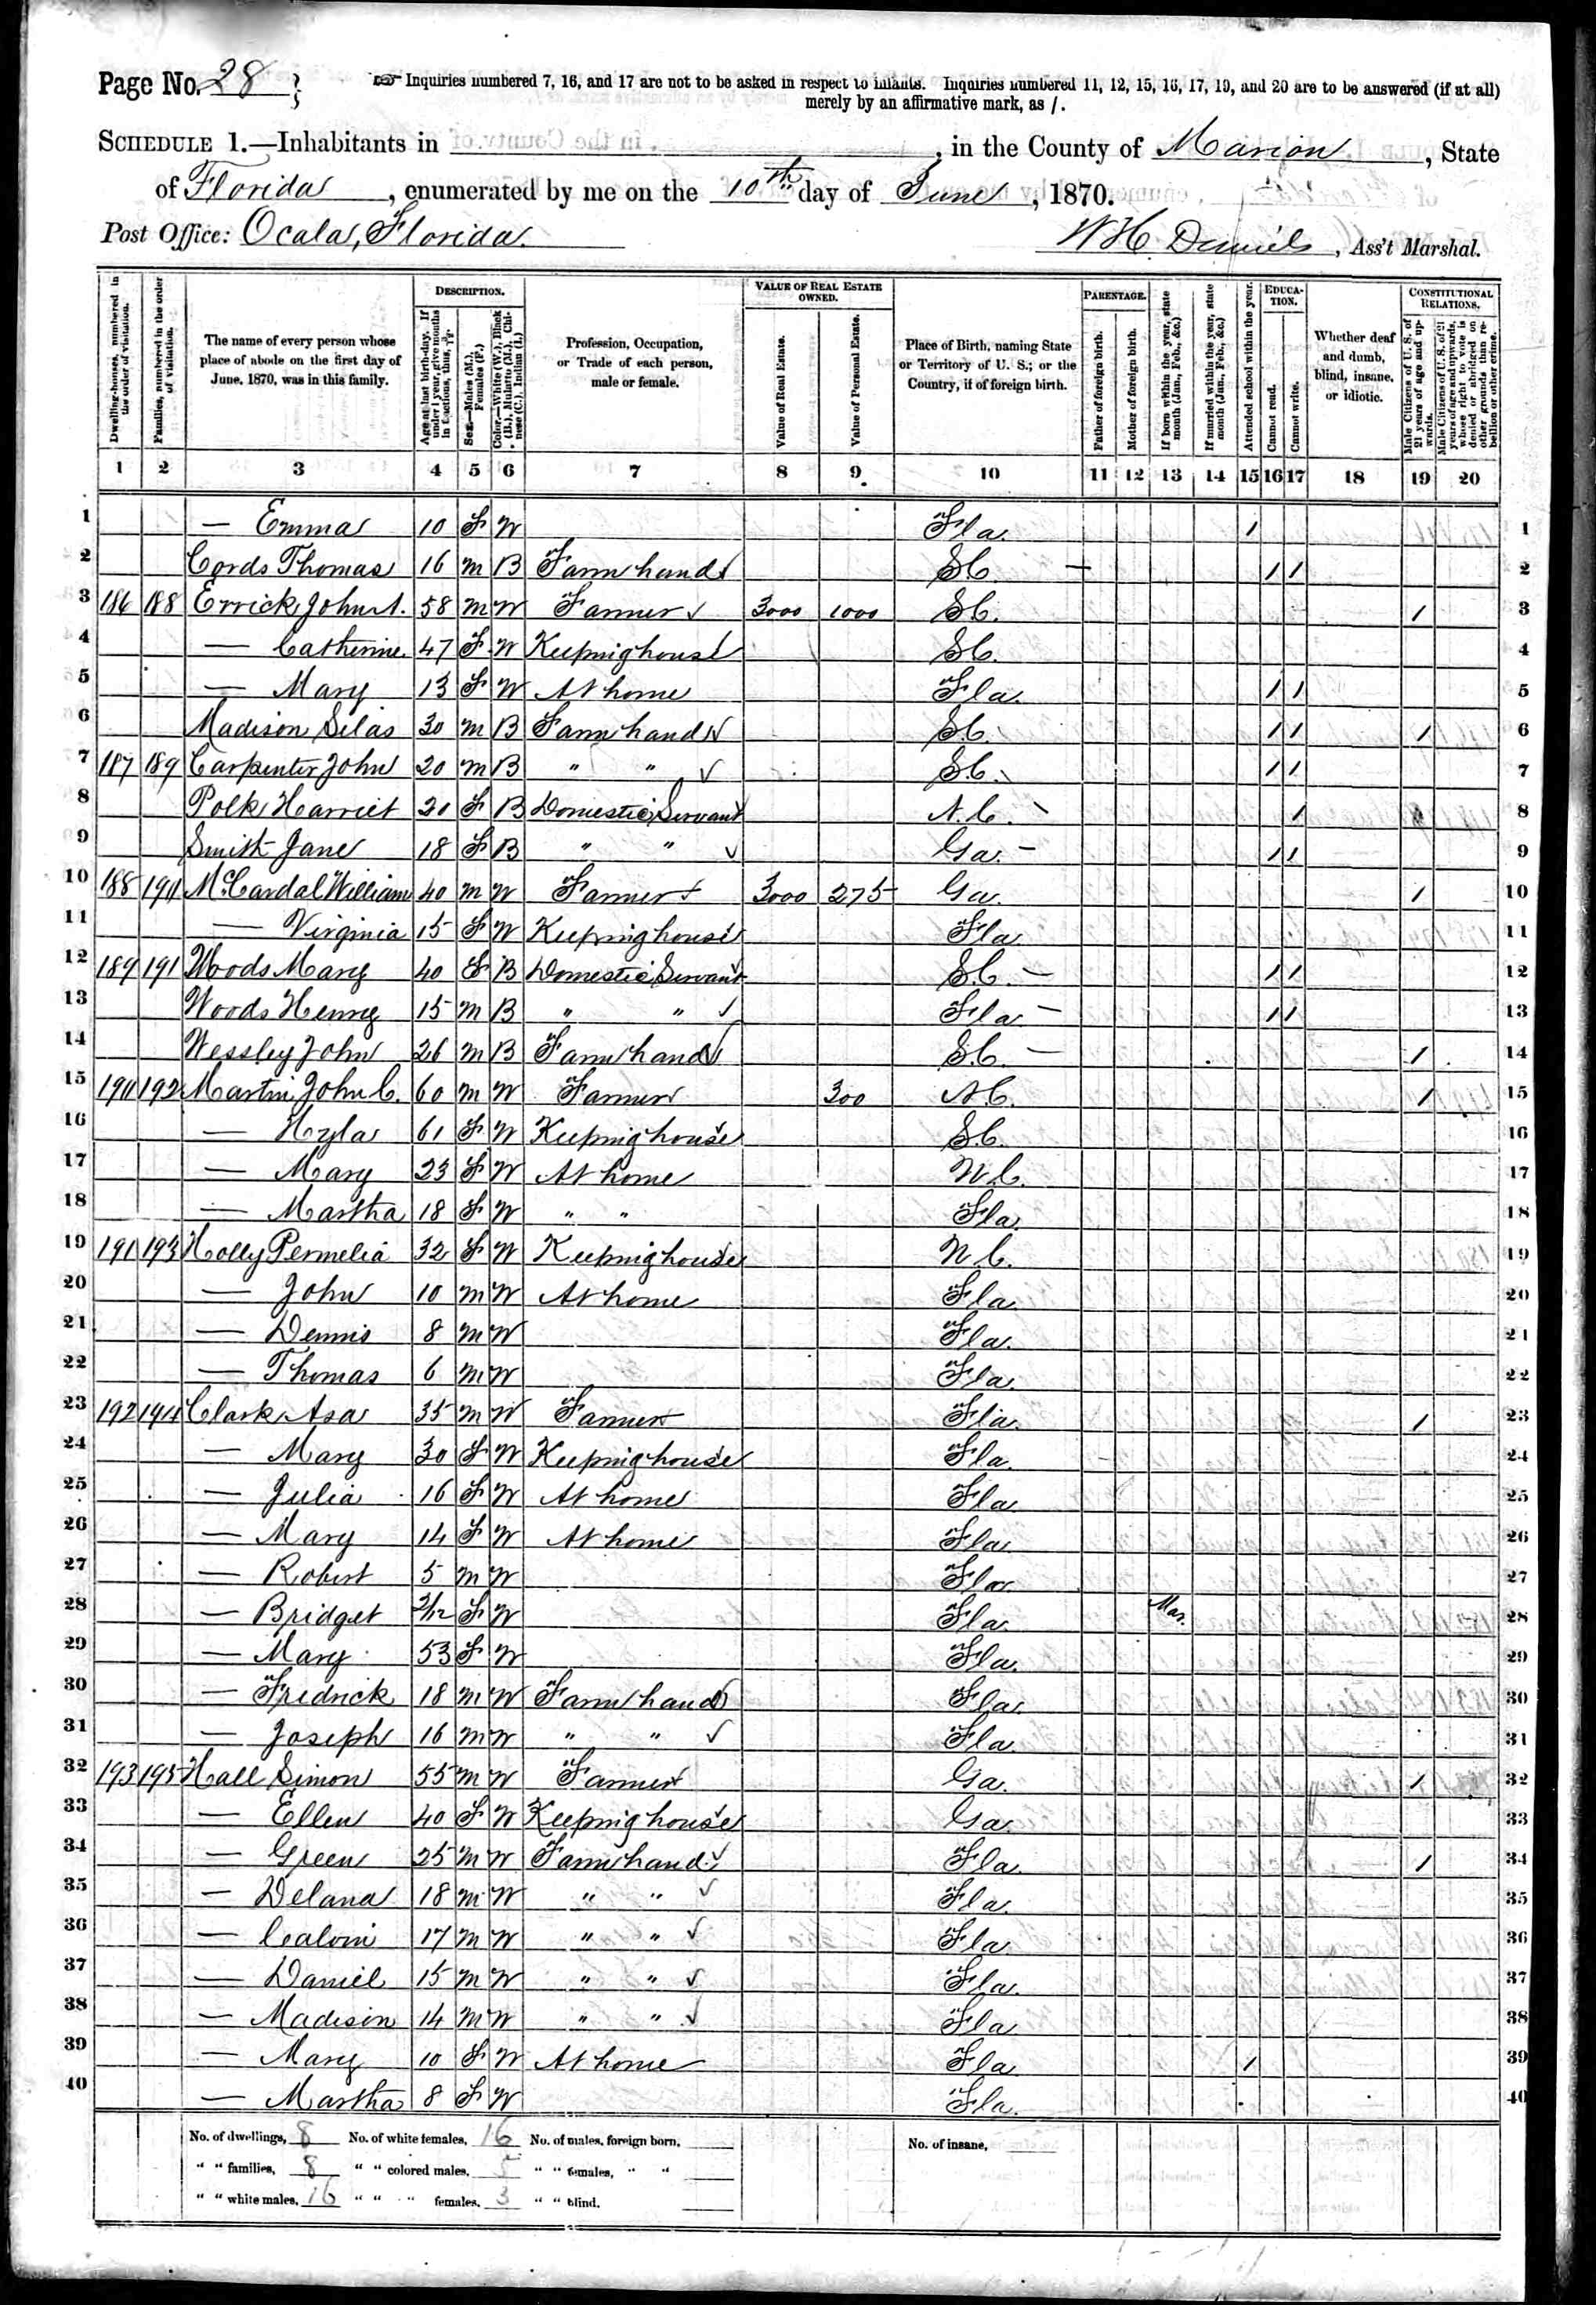 Page No. 28
☞ Inquiries numbered 7, 16, and 17 are not to be asked in respect to infants. Inquiries numbered 11, 12, 15, 16, 17, 19, and 20 are to be answered (if at all)
merely by an affirmative mark, as /.
SCHEDULE 1.—Inhabitants in , in the County of Marion, State
of Florida, enumerated by me on the 10th day of June, 1870.
Post Office: Ocala, Florida
W H Daniels, Ass't Marshal.
Dwelling-houses, numbered in the order of visitation.
Families, numbered in the order of visitation.
The name of every person whose place of abode on the first day of June, 1870, was in this family.
DESCRIPTION.
Age at last birth-day. If under 1 year, give months in fractions, thus, 3/12
Sex.—Males (M.), Females (F.)
Color.—White (W.), Black (B.), Mulatto (M.), Chinese (C.), Indian (I.)
Profession, Occupation, or Trade of each person, male or female.
VALUE OF REAL ESTATE OWNED.
Value of Real Estate.
Value of Personal Estate.
Place of Birth, naming State or Territory of U. S.; or the Country, if of foreign birth.
PARENTAGE.
Father of foreign birth.
Mother of foreign birth.
If born within the year, state month (Jan., Feb., &c.)
If married within the year, state month (Jan., Feb., &c.)
Attended school within the year.
EDUCATION.
Cannot read.
Cannot write.
Whether deaf and dumb, blind, insane, or idiotic.
CONSTITUTIONAL RELATIONS.
Male Citizens of U. S. of 21 years of age and upwards.
Male Citizens of U. S. of 21 years of age and upwards, whose right to vote is denied or abridged on other grounds than rebellion or other crime.
1 2 3 4 5 6 7 8 9 10 11 12 13 14 15 16 17 18 19 20
1 — Emma 10 F W Fla. / 1
2 Cords Thomas 16 M B Farm hand S.C. / / 2
3 186 188 Errick John A. 58 M W Farmer 3000 1000 S.C. / 3
4 — Catherine 47 F W Keeping house S.C. 4
5 — Mary 13 F W At home Fla. / / 5
6 Madison Silas 30 M B Farm hand S.C. / / / 6
7 187 189 Carpenter John 20 M B " " S.C. / / 7
8 Polk Harriet 20 F B Domestic Servant N.C. / 8
9 Smith Jane 18 F B " " Ga. / / 9
10 188 190 McCardal William 40 M W Farmer 3000 275 Ga. / 10
11 — Virginia 15 F W Keeping house Fla 11
12 189 191 Woods Mary 40 F B Domestic Servant S.C. / / 12
13 Woods Henry 15 M B " " Fla / / 13
14 Wessley John 26 M B Farm hand S.C. / 14
15 190 192 Martin John C. 60 M W Farmer 300 N.C. / 15
16 — Hyla 61 F W Keeping house S.C. 16
17 — Mary 23 F W At home N.C. 17
18 — Martha 18 F W " " Fla. 18
19 191 193 Holly Permelia 32 F W Keeping house N.C. 19
20 — John 10 M W At home Fla. 20
21 — Dennis 8 M W Fla. 21
22 — Thomas 6 M W Fla. 22
23 192 194 Clark Asa 35 M W Farmer Fla. / 23
24 — Mary 30 F W Keeping house Fla. 24
25 — Julia 16 F W At home Fla 25
26 — Mary 14 F W At home Fla 26
27 — Robert 5 M W Fla. 27
28 — Bridget 2/12 F W Fla. Mar. 28
29 — Mary 53 F W Fla. 29
30 — Fredrick 18 M W Farm hand Fla. 30
31 — Joseph 16 M W " " Fla. 31
32 193 195 Hall Simon 55 M W Farmer Ga. / 32
33 — Ellen 40 F W Keeping house Ga. 33
34 — Green 25 M W Farm hand Fla. / 34
35 — Delana 18 M W " " Fla. 35
36 — Calvin 17 M W " " Fla. 36
37 — Daniel 15 M W " " Fla. 37
38 — Madison 14 M W " " Fla. 38
39 — Mary 10 F W At home Fla. / 39
40 — Martha 8 F W Fla. 40
No. of dwellings, 8 No. of white females, 16 No. of males, foreign born, No. of insane,
" " families, 8 " " colored males, 5 " " females, " "
" " white males, 16 " " " females, 3 " " blind.